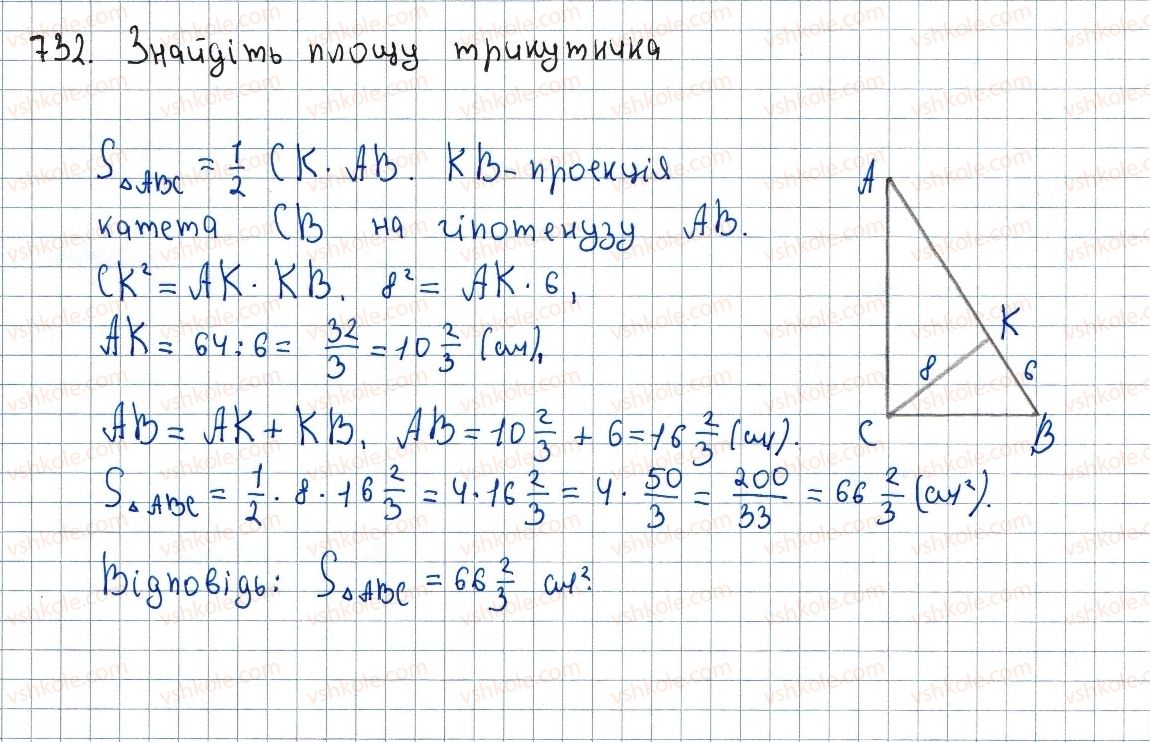 732. Знайдіть площу трикутника
S△ABC = 1/2 CK · AB. KB - проекція
катета CB на гіпотенузу AB.
CK² = AK · KB. 8² = AK · 6,
AK = 64 : 6 = 32/3 = 10 2/3 (см),
AB = AK + KB, AB = 10 2/3 + 6 = 16 2/3 (см).
S△ABC = 1/2 · 8 · 16 2/3 = 4 · 16 2/3 = 4 · 50/3 = 200/33 = 66 2/3 (см²).
Відповідь: S△ABC = 66 2/3 см².
A
K
8
6
C
B
vshkole.com